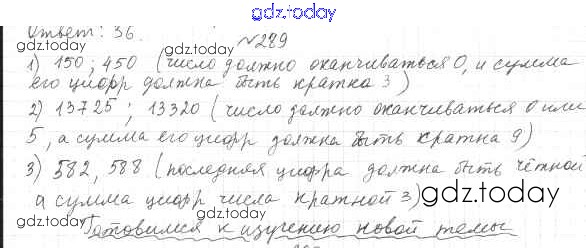 gdz.today
Ответ: 36.
gdz.today gdz.today
№289
1) 150; 450 (число должно оканчиваться 0, и сумма
его цифр должна быть кратна 3)
gdz.today gdz.today
2) 13725; 13320 (число должно оканчиваться 0 или
5, а сумма его цифр должна быть кратна 9)
gdz.today gdz.today
3) 582, 588 (последняя цифра должна быть чётной
а сумма цифр числа кратной 3)
gdz.today
gdz.today gdz.today
Готовимся к изучению новой темы